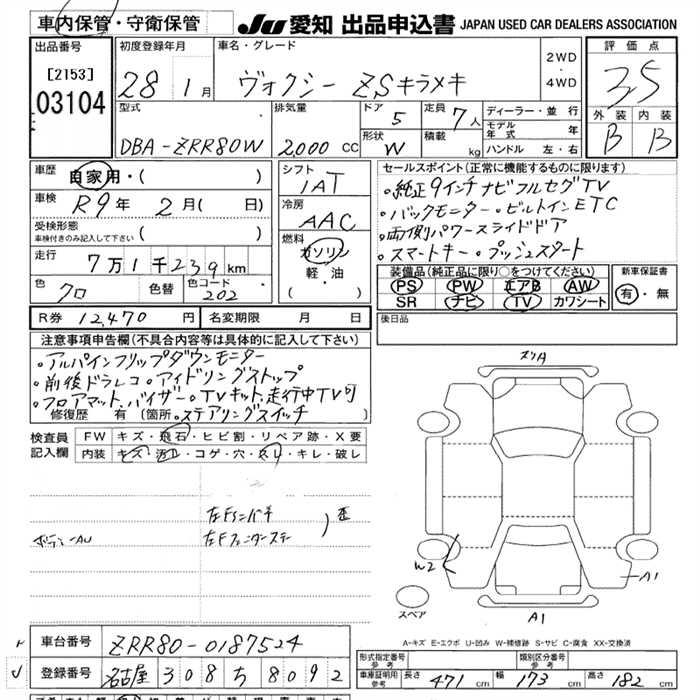 車内保管・守衛保管 JU 愛知 出品申込書 JAPAN USED CAR DEALERS ASSOCIATION
出品番号 初度登録年月 車名・グレード 2WD・4WD 評価点
[2153] 03104 28 1月 ヴォクシー ZSキラメキ 3.5
型式 排気量 ドア 5 定員 7人 ディーラー・並行 外装 内装
DBA-ZRR80W 2,000 CC 形状 W 積載 kg モデル年式 年 B B
ハンドル 左・右
車歴 自家用・( ) シフト IAT セールスポイント(正常に機能するものに限ります)
車検 R9年 2月( 日) 冷房 AAC ・純正9インチナビフルセグTV
受検形態 ( ) ・バックモニター・ビルトインETC
車検付きのみ記入して下さい
燃料 ガソリン 軽・油 ・( ) ・両側パワースライドドア
走行 7万1千239km ・スマートキー・プッシュスタート
色 クロ 色替 色コード 202 装備品(純正品に限り○をつけてください) 新車保証書
PS PW エアB AW 有・無
SR ナビ TV カワシート
R券 12,470円 名変期限 月 日 後日品
注意事項申告欄(不具合内容等は具体的に記入して下さい)
・アルパインフリップダウンモニター
・前後ドラレコ・アイドリングストップ
・フロアマット、バイザー・TVキット、走行中TV可
修復歴 有 [箇所 ・ステアリングスイッチ
検査員記入欄 FW キズ・飛石・ヒビ割・リペア跡・X要
内装 キズ・汚れ・コゲ・穴・スレ・キレ・破レ
スリA
W2
A1
A1
スペア
A-キズ E-エクボ U-凹み W-補修跡 S-サビ C-腐食 XX-交換済
車台番号 ZRR80-0187524
登録番号 名古屋 308 ち 8092
形式指定番号 参考 類別区分番号 参考
車庫証明用 参考 長さ 471cm 幅 173cm 高さ 182cm